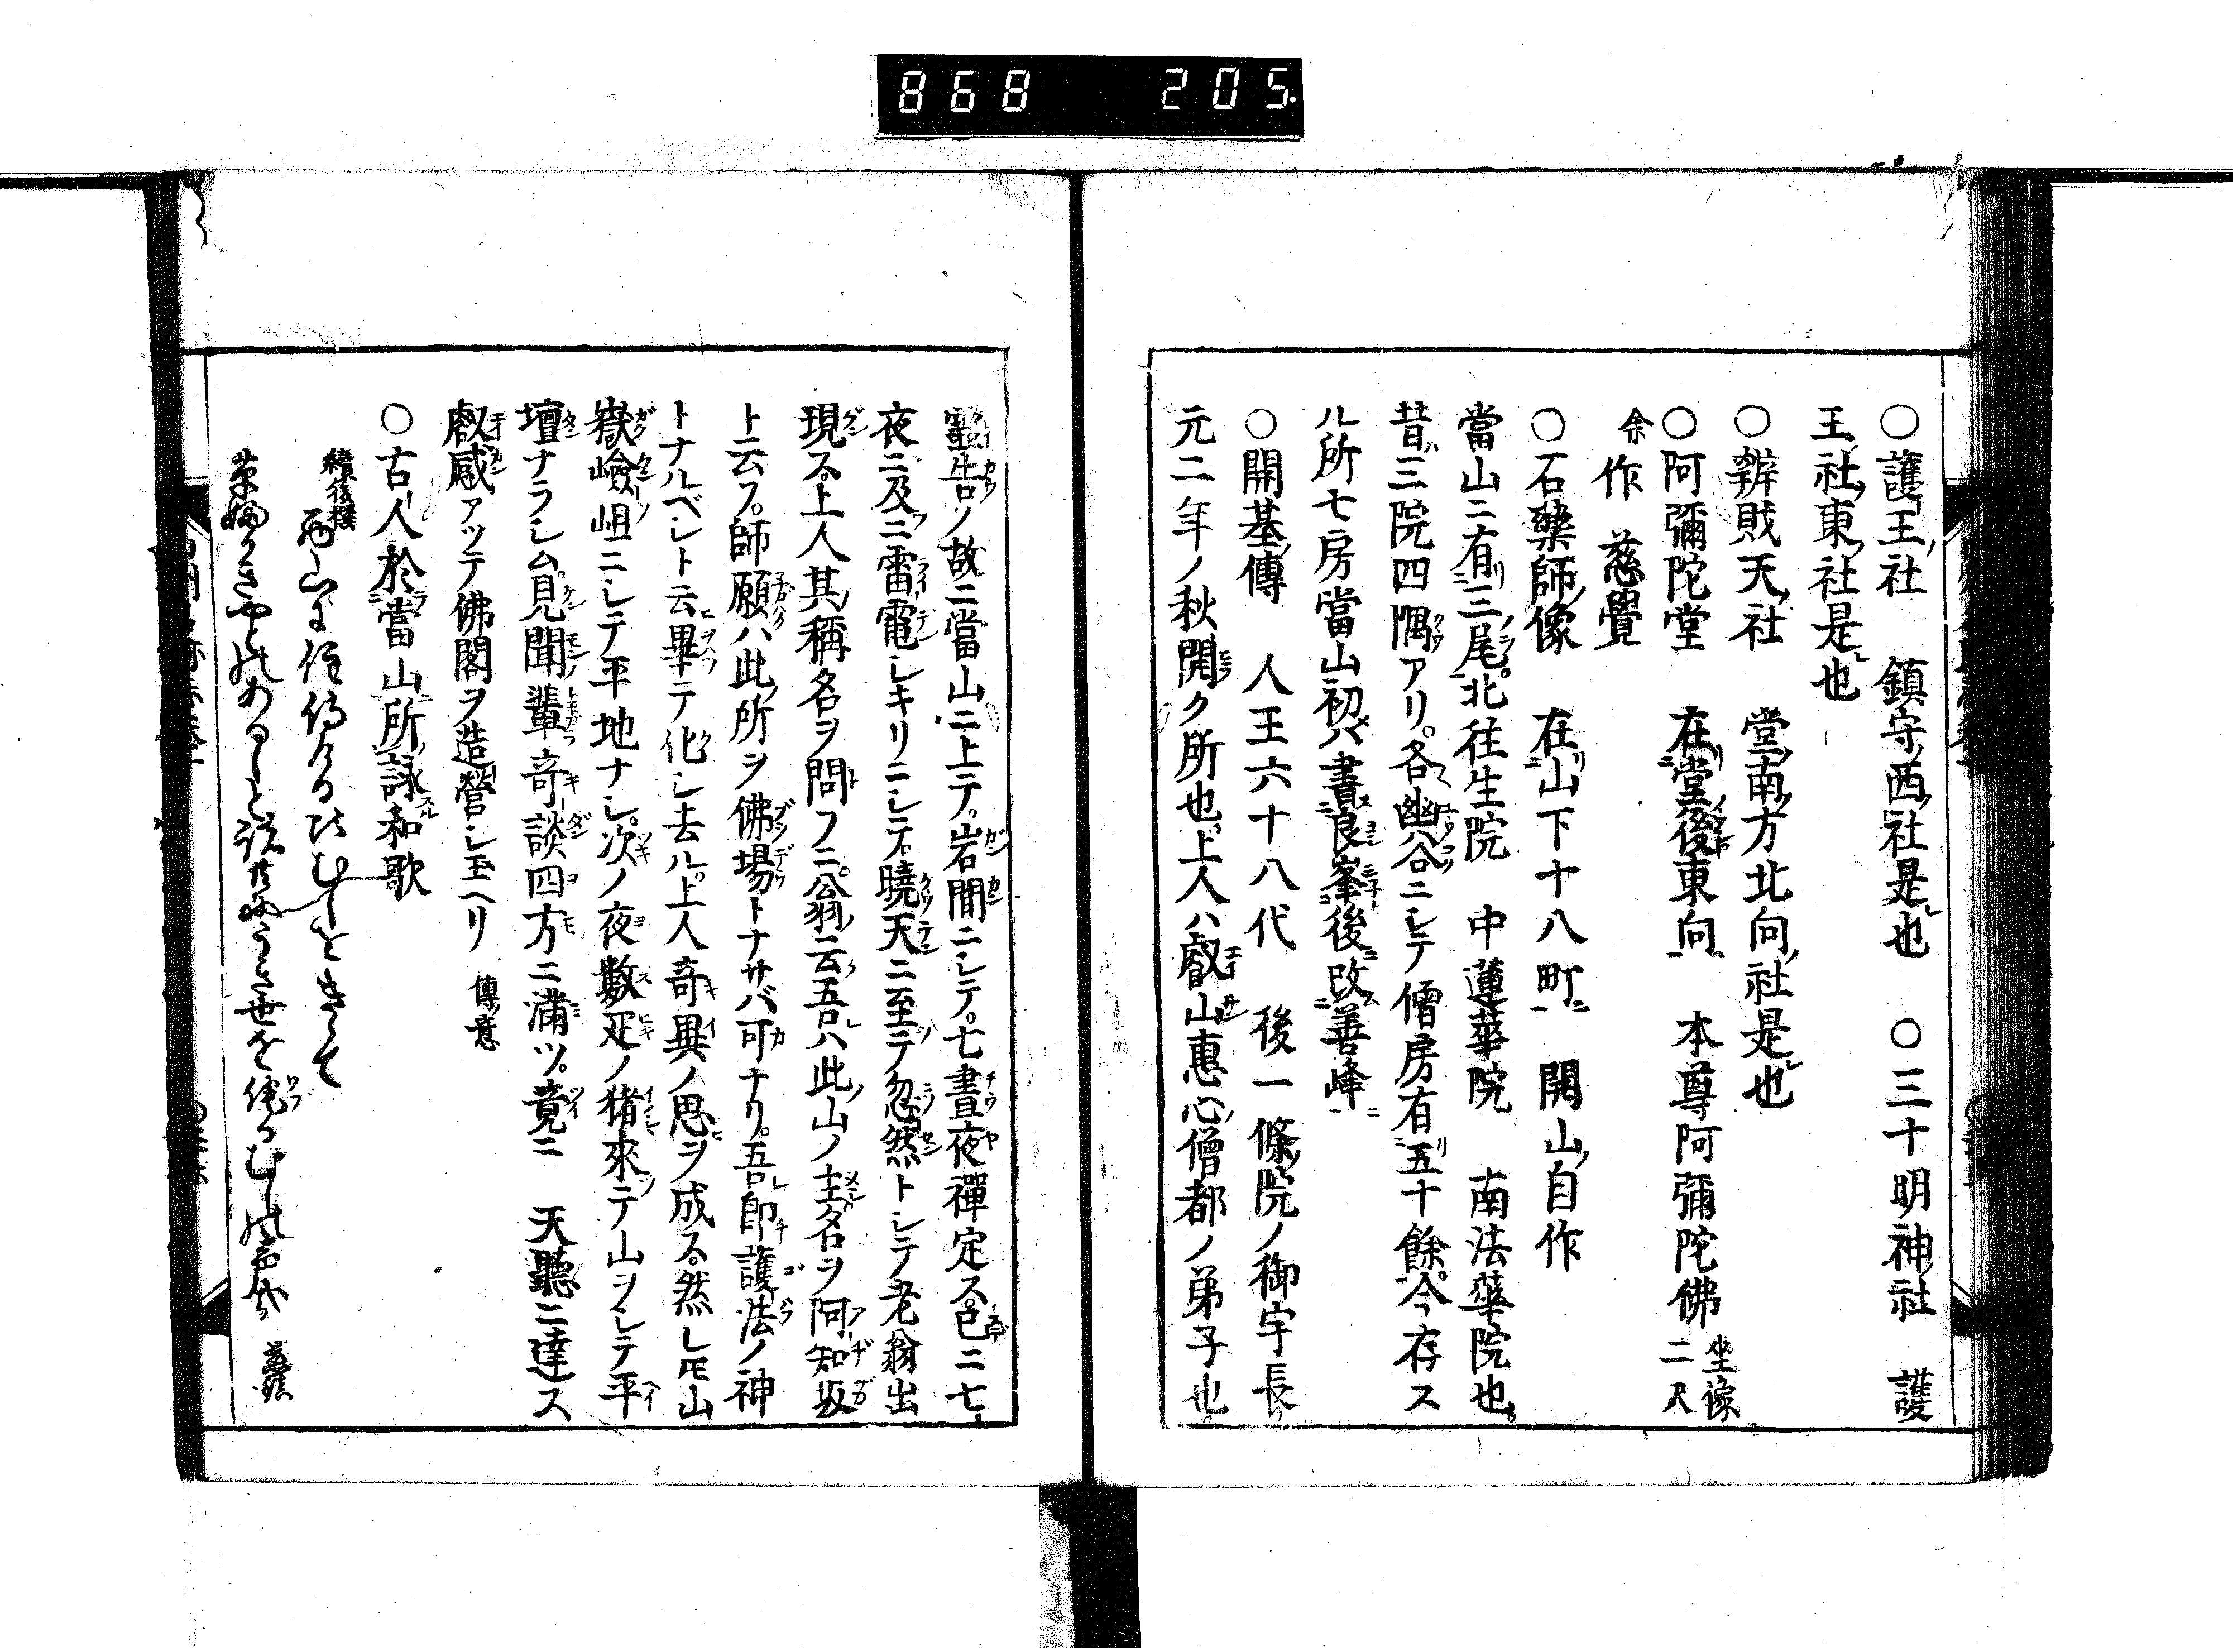 868 205
○護王社 鎮守西社是也 ○三十明神社 護
王社東社是也
○辨賎天社 堂南方北向社是也
○阿彌陀堂 在堂後東向 本尊阿彌陀佛 坐像二尺
余作 慈覺
○石藥師像 在山下十八町 開山自作
當山ニ有三尾。北往生院 中蓮華院 南法華院也。
昔三院四隅アリ。各幽谷ニシテ僧房有五十餘。今存ス
ル所七房當山初ハ書良峯後改善峰
○開基傳 人王六十八代 後一條院ノ御宇長
元二年ノ秋開ク所也。上人ハ叡山惠心僧都ノ弟子也。
靈告ノ故ニ當山ニ上テ。岩間ニシテ。七晝夜禪定ス。已ニ七
夜ニ及ニ雷電シキリニシテ。曉天ニ至テ忽然トシテ老翁出
現ス。上人其稱名ヲ問フニ。翁ノ云吾ハ此山ノ主名ヲ阿知坂
ト云フ。師願ハ此所ヲ佛場トナサバ可ナリ。吾即護法ノ神
トナルベシト云畢テ化シ去ル。上人奇異ノ思ヲ成ス。然レ𪜈山
嶽嶮岨ニシテ平地ナシ。次ノ夜數疋ノ猪來テ山ヲシテ平
壇ナラシム見聞輩奇談四方ニ滿ツ。竟ニ 天聽ニ達ス
叡感アッテ佛閣ヲ造營シ玉ヘリ 傳ノ意
○古人於當山所詠和歌
續後撰 西山に住侍ける比むしをきゝて